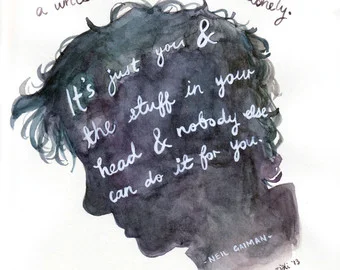 a
It's just you &
the stuff in your
head & nobody else
can do it for you.
-NEIL GAIMAN-
'13